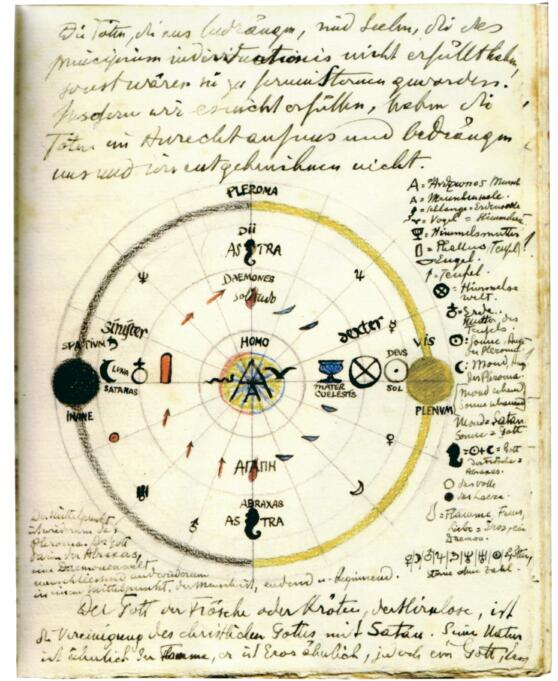 Die Toten, die uns bedrängen, sind Seelen, die das
principium individuationis nicht erfüllt haben,
sonst wären sie zu fernen Sternen geworden.
Insofern wir es nicht erfüllen, haben die
Toten ein Anrecht auf uns und bedrängen
uns und wir entgehen ihnen nicht.
PLEROMA
DII
ASTRA
DAEMONES
sinister
dexter
VIS
SPATIUM
HOMO
LUNA
SATANAS
MATER
COELESTIS
DEUS
SOL
INANE
PLENUM
ΑΓΑΠΗ
ABRAXAS
ASTRA
A = Ἄνθρωπος Mensch
A = Menschenseele
= Schlange = Erdenseele
= Vogel = Himmelsseele
= Himmelsmutter
= Phallus Teufel
= Engel.
= Teufel.
= Himmelswelt.
= Erde, Mutter des Teufels
= Sonne, Auge des Pleroma.
= Mond, Auge des Pleroma
Mond = Satan
Sonne = Gott
= Gott der Frösche = Abraxas.
das Volle
das Leere
= Flamme, Feuer,
Liebe = Eros, ein
Daemon.
Götter,
Sterne ohne Zahl.
Der Mittelpunkt
ist wiederum das
Pleroma. Der Gott
darin der Abraxas,
eine Daemonenwelt
in einem Mittelpunkt, die Menschheit, endend u. beginnend.
Der Gott der Frösche oder Kröten, der Hirnlose, ist
die Vereinigung des christlichen Gottes mit Satan. Seine Natur
ist ähnlich der Flamme, er ist Eros ähnlich, jedoch ein Gott, Eros